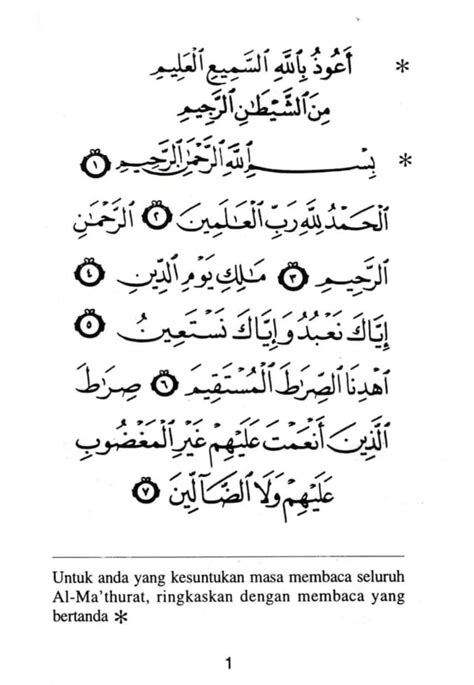 * أَعُوذُ بِٱللَّهِ ٱلسَّمِيعِ ٱلْعَلِيمِ
مِنَ ٱلشَّيْطَانِ ٱلرَّجِيمِ
* بِسْمِ ٱللَّهِ ٱلرَّحْمَٰنِ ٱلرَّحِيمِ ١
ٱلْحَمْدُ لِلَّهِ رَبِّ ٱلْعَٰلَمِينَ ٢ ٱلرَّحْمَٰنِ
ٱلرَّحِيمِ ٣ مَٰلِكِ يَوْمِ ٱلدِّينِ ٤
إِيَّاكَ نَعْبُدُ وَإِيَّاكَ نَسْتَعِينُ ٥
ٱهْدِنَا ٱلصِّرَٰطَ ٱلْمُسْتَقِيمَ ٦ صِرَٰطَ
ٱلَّذِينَ أَنْعَمْتَ عَلَيْهِمْ غَيْرِ ٱلْمَغْضُوبِ
عَلَيْهِمْ وَلَا ٱلضَّآلِّينَ ٧
Untuk anda yang kesuntukan masa membaca seluruh
Al-Ma'thurat, ringkaskan dengan membaca yang
bertanda *
1